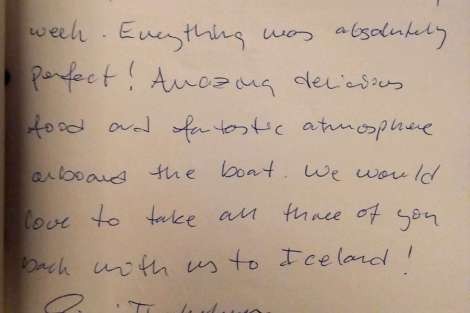 week. Everything was absolutely
perfect! Amazing delicious
food and fantastic atmosphere
onboard the boat. We would
love to take all three of you
back with us to Iceland!